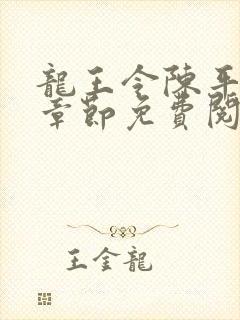 龍王令陳平
章節免費閱
王金龍